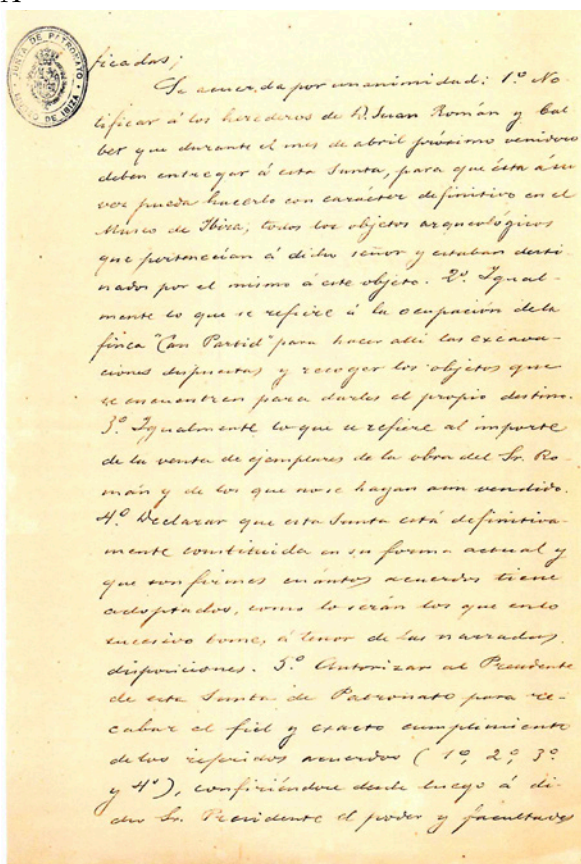 JUNTA DE PATRONATO
MUSEO DE IBIZA
ficadas;
Se acuerda por unanimidad: 1.º No-
tificar á los herederos de D. Juan Román y Cal-
bet que durante el mes de abril próximo venidero
deben entregar á esta Junta, para que ésta á su
vez pueda hacerlo con carácter definitivo en el
Museo de Ibiza, todos los objetos arqueológicos
que pertenecían á dicho señor y estaban desti-
nados por el mismo á este objeto. 2º. Igual-
mente lo que se refiere á la ocupación de la
finca "Can Partid" para hacer allí las excava-
ciones dispuestas y recoger los objetos que
se encuentren para darles el propio destino.
3º Igualmente lo que se refiere al importe
de la venta de ejemplares de la obra del Sr. Ro-
mán y de los que no se hayan aun vendido.
4º Declarar que esta Junta está definitiva-
mente constituida en su forma actual y
que son firmes cuántos acuerdos tiene
adoptados, como lo serán los que en lo
sucesivo tome, á tenor de las narradas
disposiciones. 5º Autorizar al Presidente
de esta Junta de Patronato para re-
cabar el fiel y exacto cumplimiento
de los referidos acuerdos (1º, 2º, 3º
y 4º), confiriéndose desde luego á di-
cho Sr. Presidente el poder y facultades